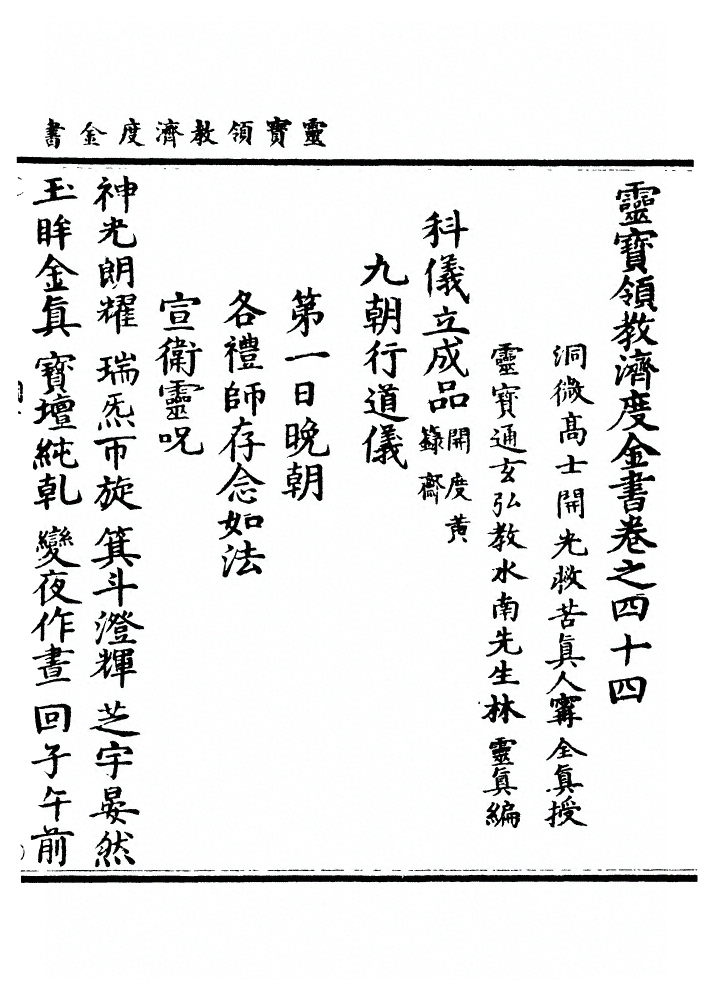 靈寶領教濟度金書
靈寶領教濟度金書卷之四十四
洞微高士開光救苦眞人甯全眞授
靈寶通玄弘教水南先生林靈眞編
科儀立成品開度黃籙齋
九朝行道儀
第一日晚朝
各禮師存念如法
宣衛靈呪
神光朗耀 瑞炁帀旋 箕斗澄輝 芝宇晏然
玉眸金眞 寶壇純乹 變夜作晝 回子午前